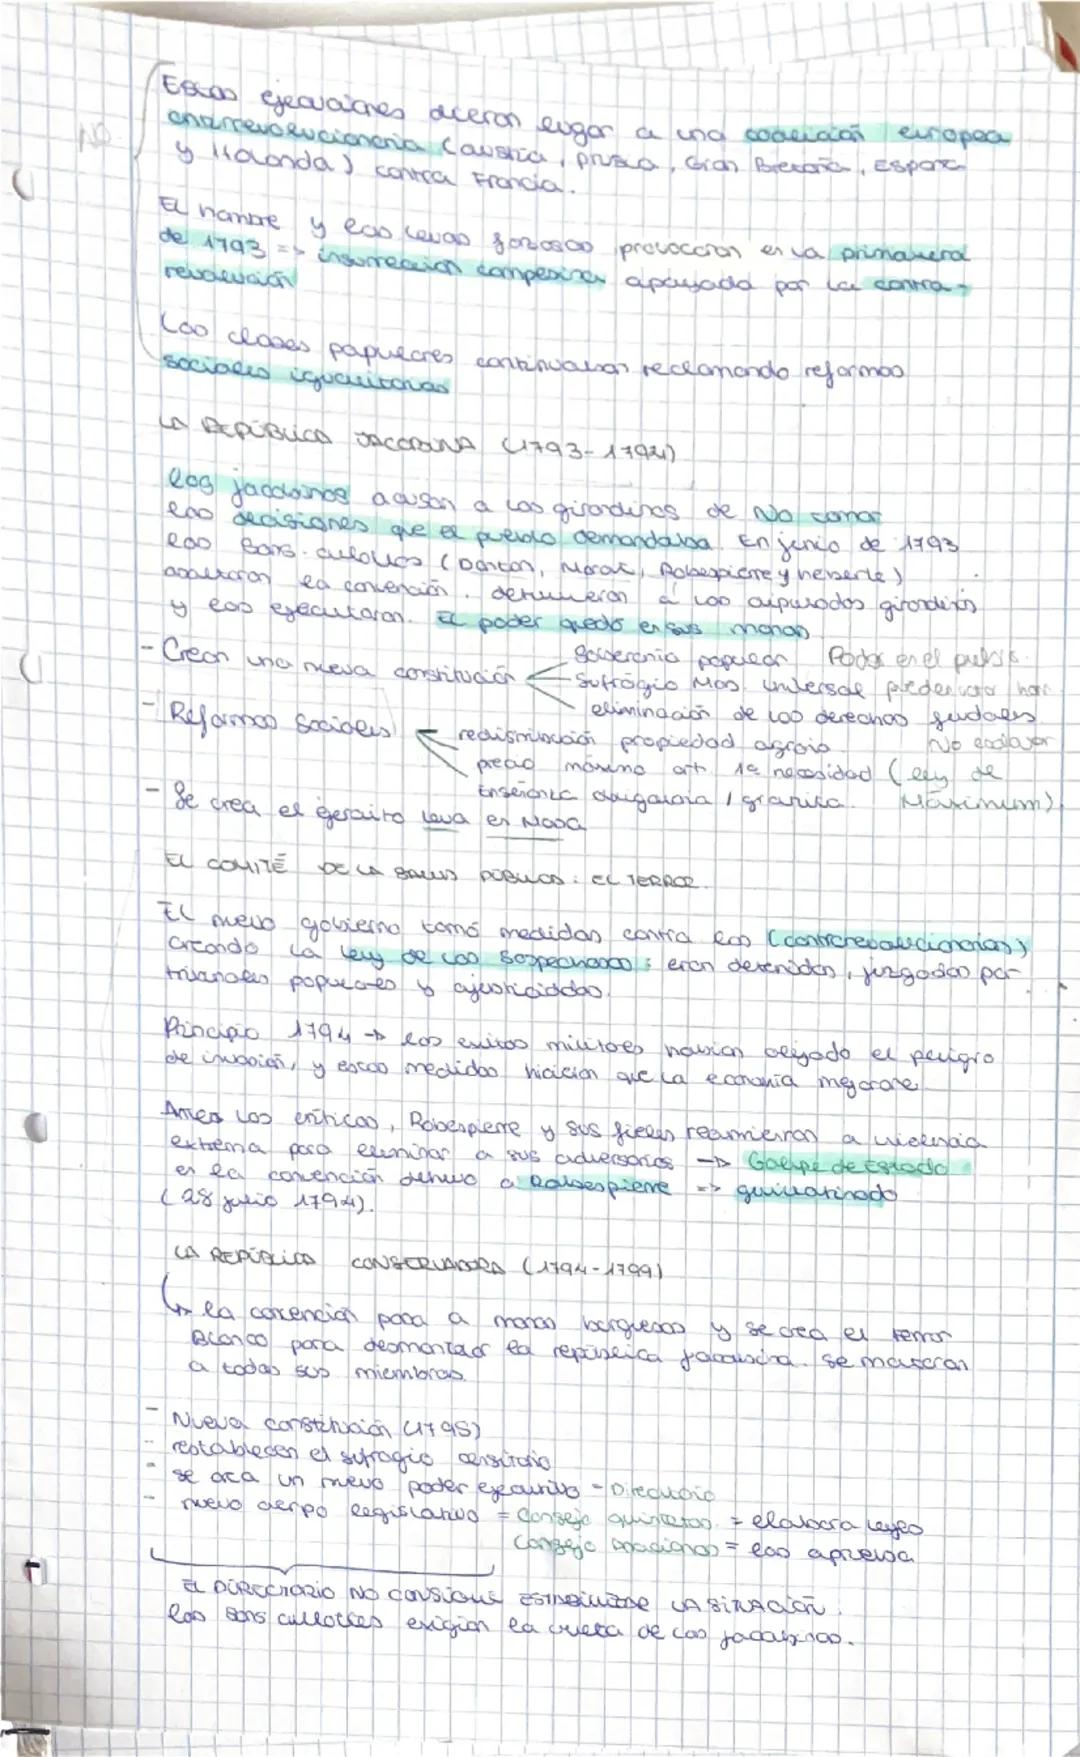 NO
Estas ejecuciones dieron lugar a una coalición europea
contrarrevolucionaria (Austria, Prusia, Gran Bretaña, España
y Holanda) contra Francia.
El hambre y las levas forzosas provocaron en la primavera
de 1793 => insurrección campesina apoyada por la contra-
revolución
Las clases populares continuaban reclamando reformas
sociales igualitarias
LA REPÚBLICA JACOBINA (1793-1794)
Los jacobinos acusan a los girondinos de No tomar
las decisiones que el pueblo demandaba. En junio de 1793
los sans-culottes (Danton, Marat, Robespierre y heberte)
asaltaron la convención. detuvieron a los diputados girondinos
y los ejecutaron. El poder quedó en sus manos
- Crean una nueva constitución
Soberanía popular Poder en el
Sufragio Mas. universal pueden votar hom
eliminación de los derechos feudales
No
- Reformas Sociales
redistribución propiedad agraria
precio máximo art. 1ª necesidad (ley de
Máximum)
Enseñanza obligatoria / gratuita.
- Se crea el ejercito leva en Masa
EL COMITÉ DE LA SALUD PÚBLICA: EL TERROR.
El nuevo gobierno tomó medidas contra los (contrarevolucionarios)
creando la ley de los Sospechosos: eran detenidos, juzgados por
triunales populares y ajusticiados.
Principio 1794 → los exitos militares habían alejado el peligro
de invasión, y estas medidas hicieron que la economía mejorare
Antes las críticas, Robespierre y sus fieles reanudaron a violencia
extrema para eliminar a sus adversarios → Golpe de Estado
en la convención detuvo a Robespierre => guillotinado
(28 julio 1794).
LA REPÚBLICA CONSERVADORA (1794-1799)
↳ la convención pasa a manos burguesas y se crea el terror
Blanco para desmontar la república jacobina. se masacran
a todas sus miembros
- Nueva constitución (1795)
- restablecen el sufragio censitario
- se crea un nuevo poder ejecutivo - Directorio
- nuevo cuerpo legislativo = Consejo quinientos = elabora leyes
Consejo ancianos = las aprueba
EL DIRECTORIO NO CONSIGUE ESTABILIZAR LA SITUACIÓN.
los sans culottes exigían la vuelta de los jacobinos.